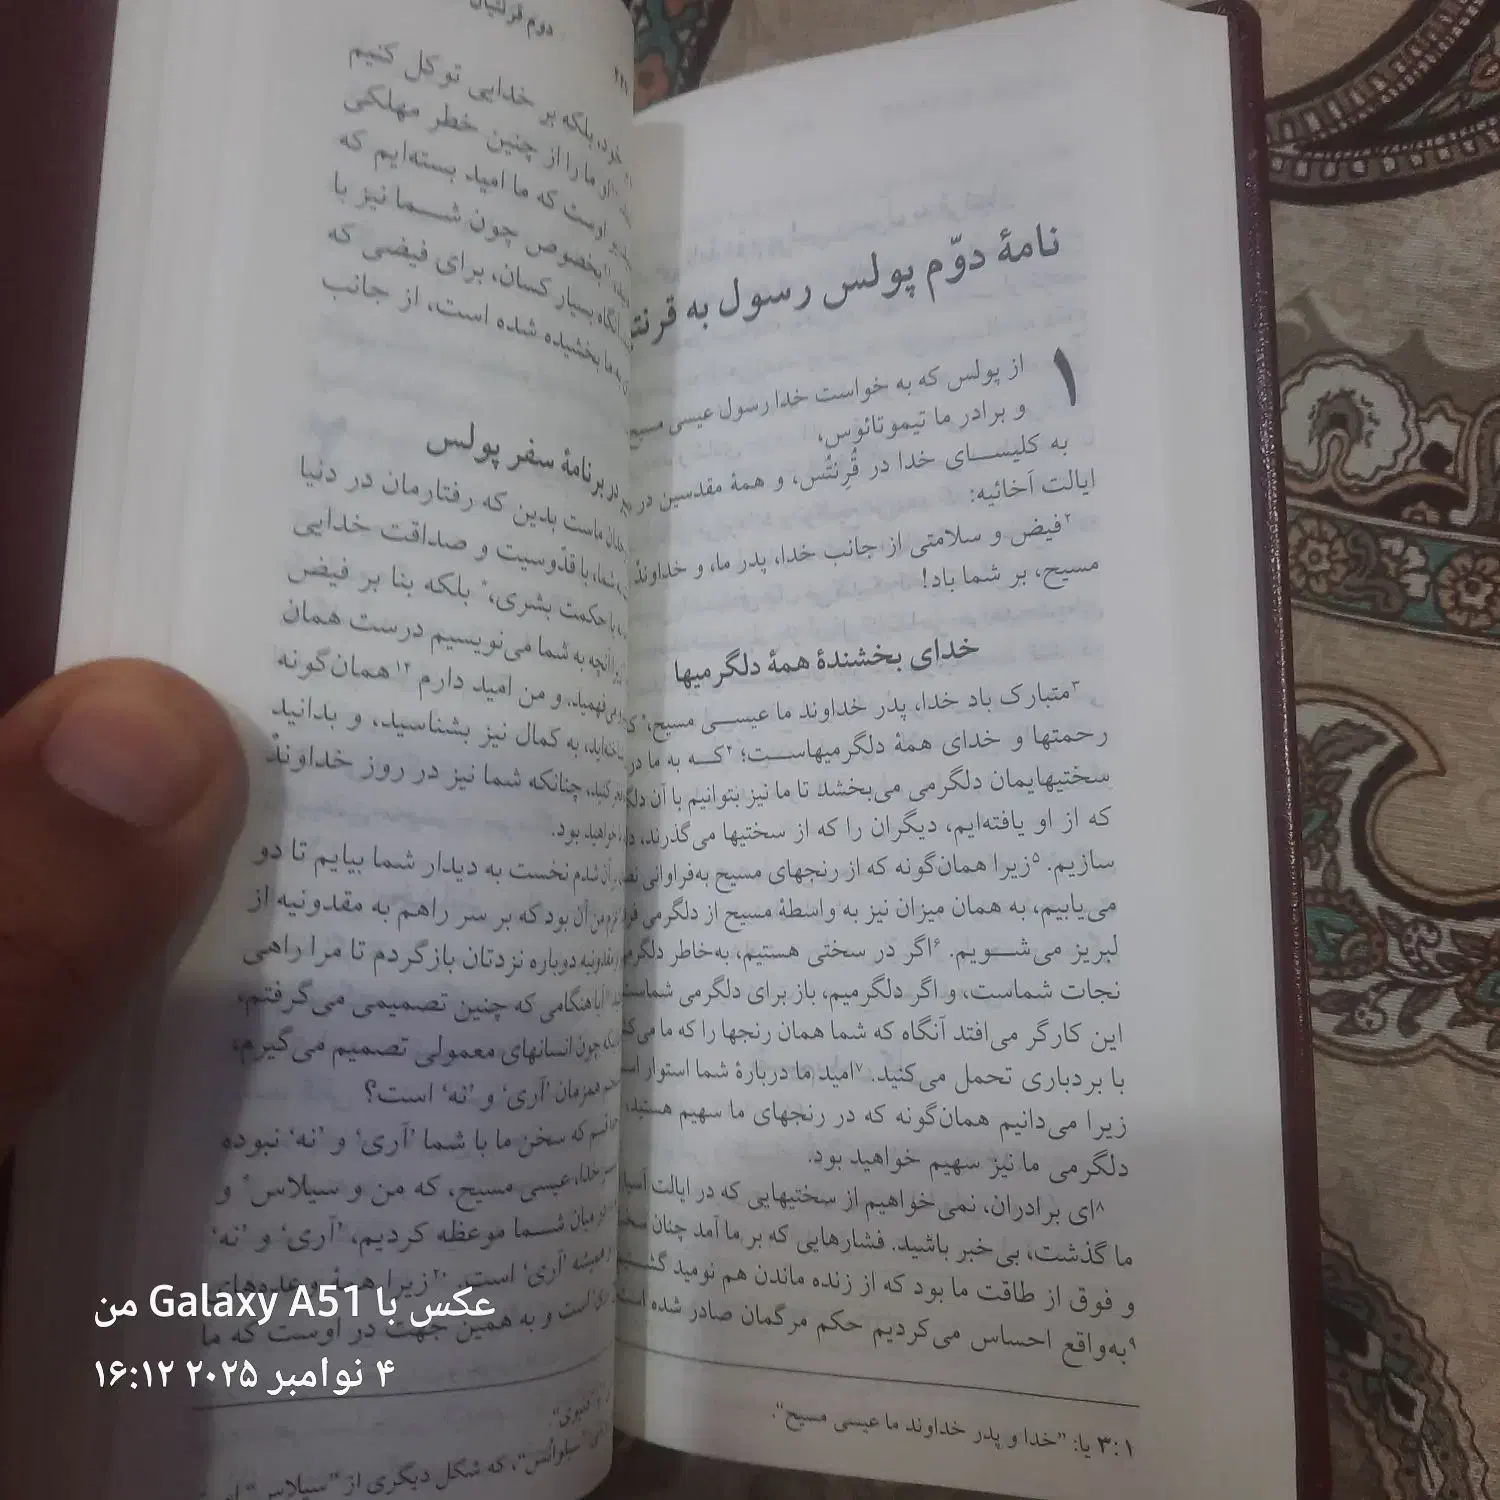 نامهٔ دوّم پولس رسول به
۱
از پولس که به خواست خدا رسول عیسی مسیح
و برادر ما تیموتائوس،
به کلیسای خدا در قُرِنتُس، و همهٔ مقدسین در
ایالت اَخائیه:
۲فیض و سلامتی از جانب خدا، پدر ما، و خداوندْ
مسیح، بر شما باد!
خدای بخشندهٔ همهٔ دلگرمیها
۳متبارک باد خدا، پدر خداوند ما عیسی مسیح،*
رحمتها و خدای همهٔ دلگرمیهاست؛ ۴که به ما در
سختیهایمان دلگرمی می‌بخشد تا ما نیز بتوانیم با آن
که از او یافته‌ایم، دیگران را که از سختیها می‌گذرند،
سازیم. ۵زیرا همان‌گونه که از رنجهای مسیح به‌فراوانی
می‌یابیم، به همان میزان نیز به واسطهٔ مسیح از دلگرمی
لبریز می‌شویم. ۶اگر در سختی هستیم، به‌خاطر
نجات شماست، و اگر دلگرمیم، باز برای دلگرمی شماست
این کارگر می‌افتد آنگاه که شما همان رنجها را که ما
با بردباری تحمل می‌کنید. ۷امید ما دربارهٔ شما استوار
زیرا می‌دانیم همان‌گونه که در رنجهای ما سهیم هستید،
دلگرمی ما نیز سهیم خواهید بود.
۸ای برادران، نمی‌خواهیم از سختیهایی که در ایالت آسیا
ما گذشت، بی‌خبر باشید. فشارهایی که بر ما آمد چنان
و فوق از طاقت ما بود که از زنده ماندن هم نومید
۹به‌واقع احساس می‌کردیم حکم مرگمان صادر شده است.
۳:۱ یا: "خدا و پدر خداوند ما عیسی مسیح".
دوم قرنتیان
خود، بلکه بر خدایی توکل کنیم
او ما را از چنین خطر مهلکی
اوست که ما امید بسته‌ایم که
بخصوص چون شما نیز با
آنگاه بسیار کسان، برای فیضی که
به ما بخشیده شده است، از جانب
در برنامهٔ سفر پولس
ماست بدین که رفتارمان در دنیا
شما، با قدّوسیت و صداقت خدایی
با حکمت بشری،* بلکه بنا بر فیض
آنچه به شما می‌نویسیم درست همان
می‌فهمید. و من امید دارم ۱۴همان‌گونه
به کمال نیز بشناسید، و بدانید
چنانکه شما نیز در روز خداوندْ
خواهید بود.
آن شدم نخست به دیدار شما بیایم تا دو
من آن بود که بر سر راهم به مقدونیه از
دوباره نزدتان بازگردم تا مرا راهی
آیا هنگامی که چنین تصمیمی می‌گرفتم،
چون انسانهای معمولی تصمیم می‌گیرم،
همزمان ’آری‘ و ’نه‘ است؟
که سخن ما با شما ’آری‘ و ’نه‘ نبوده
خدا، عیسی مسیح، که من و سیلاس* و
میان شما موعظه کردیم، ’آری‘ و ’نه‘
همیشه ’آری‘ است. ۲۰زیرا همهٔ وعده‌های
است و به همین جهت در اوست که ما
"سیلوانُس"، که شکل دیگری از "سیلاس"
عکس با Galaxy A51 من
۴ نوامبر ۲۰۲۵ ۱۶:۱۲